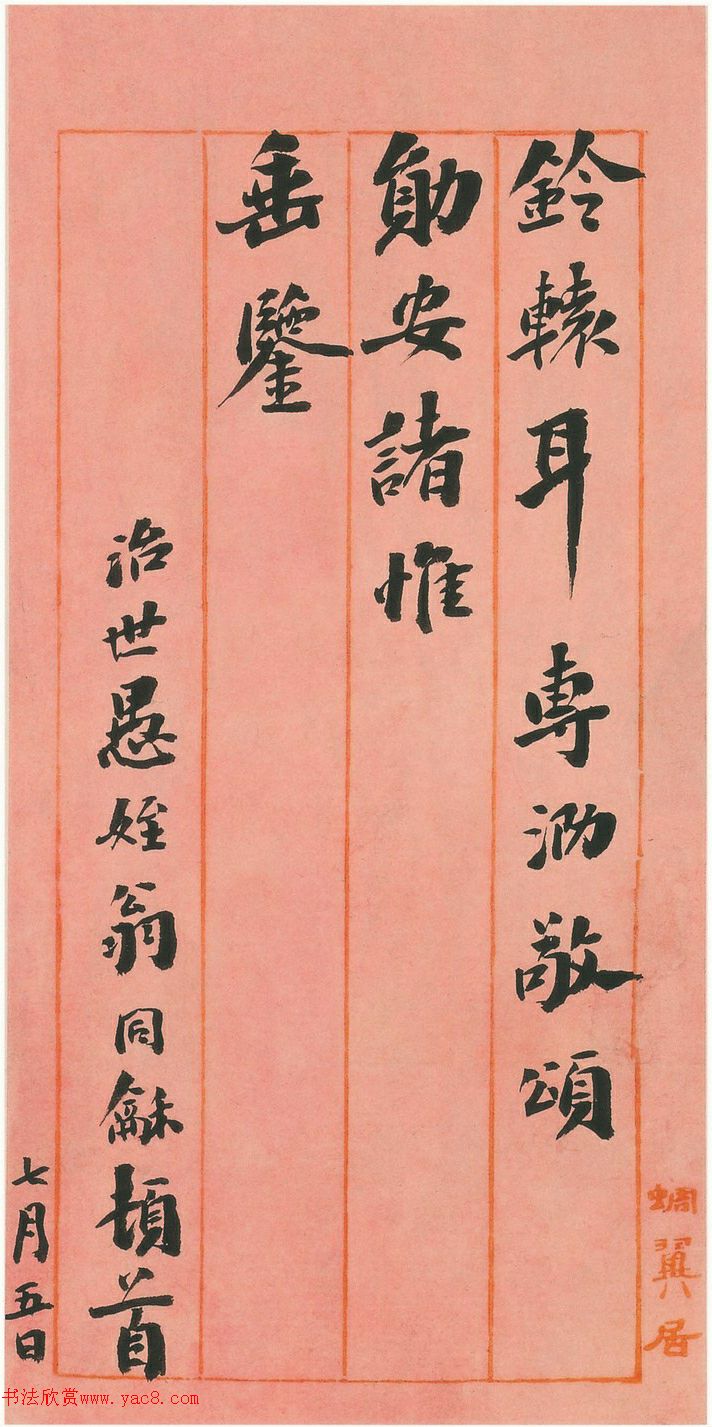 鈴轅耳專泐敬頌
勛安諸惟
垂鑒
治世愚姪翁同龢頓首
七月五日
蜩翼居
书法欣赏www.yac8.com